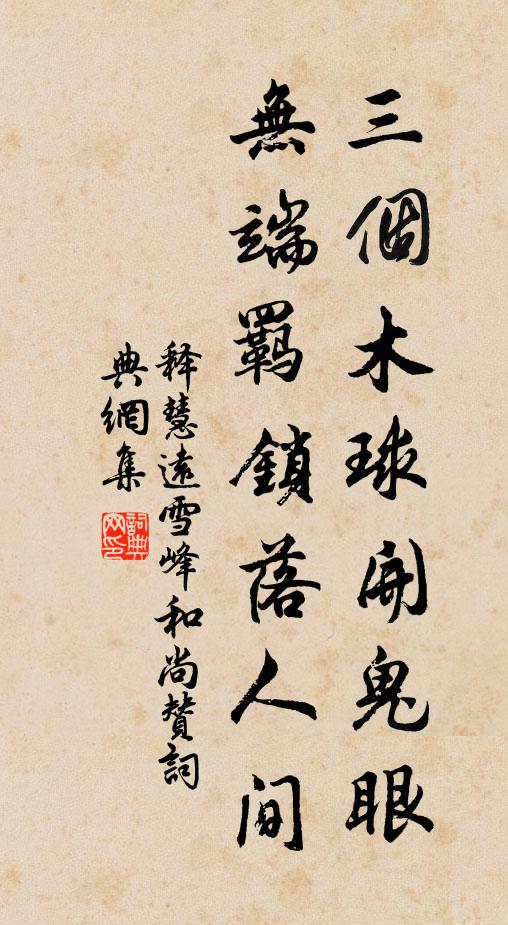 三個木球開鬼眼
無端羈鎖落人間
释慧遠雪峰和尚贊詞
典網集
詞典网印